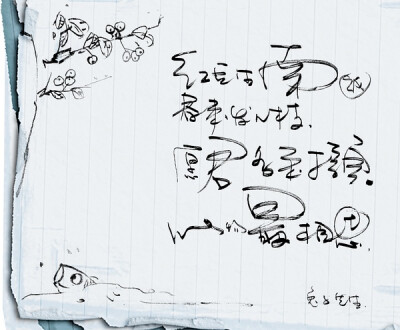 红豆生南国
春来发几枝.
愿君多采撷.
此物最相思.
兔子先生